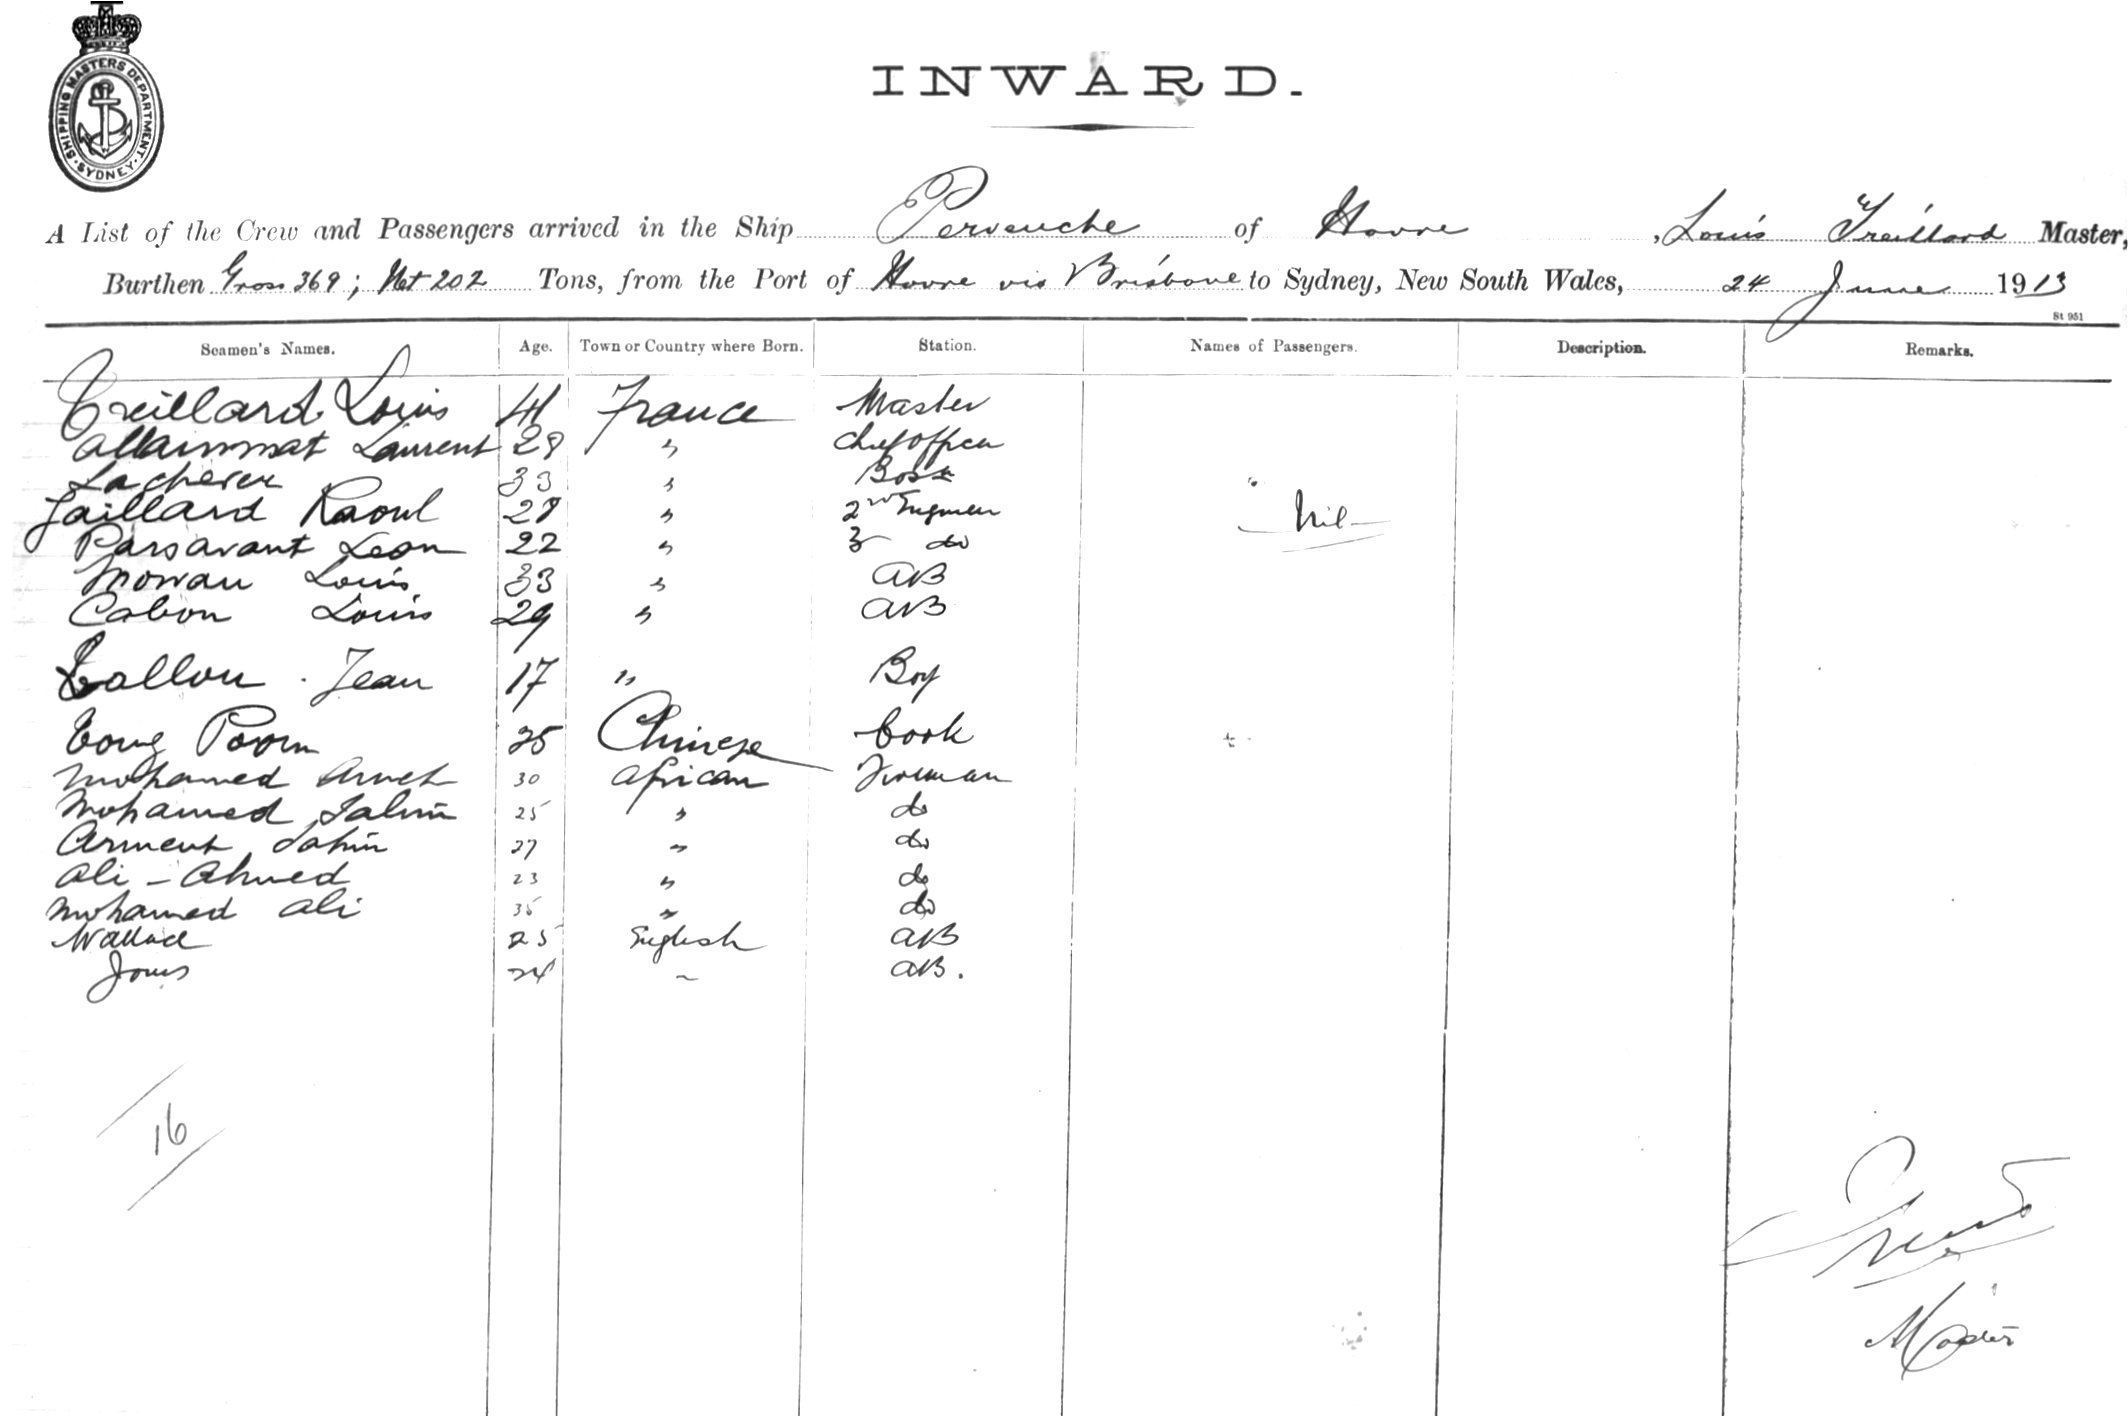 SHIPPING MASTERS DEPARTMENT SYDNEY
INWARD.
A List of the Crew and Passengers arrived in the Ship Pervenche of Havre, Louis Treillard Master,
Burthen Gross 369; Net 202 Tons, from the Port of Havre via Brisbane to Sydney, New South Wales, 24 June 1913
St 951
Seamen's Names. Age. Town or Country where Born. Station. Names of Passengers. Description. Remarks.
Treillard Louis 41 France Master
Allammat Laurent 28 " Chief Officer
33 "
Jaillard Raoul 28 " 2nd Engineer
Parsavant Leon 22 " 3 do
Louis 33 " AB
Cabon Louis 29 " AB
Lallou Jean 17 " Boy
Tong Poom 25 Chinese Cook
Mohamed 30 African Fireman
Mohamed Salim 25 " do
27 " do
Ali - Ahmed 23 " do
Mohamed Ali 35 " do
Wallace 25 English AB
Jones 24 " AB.
Nil
16
Master